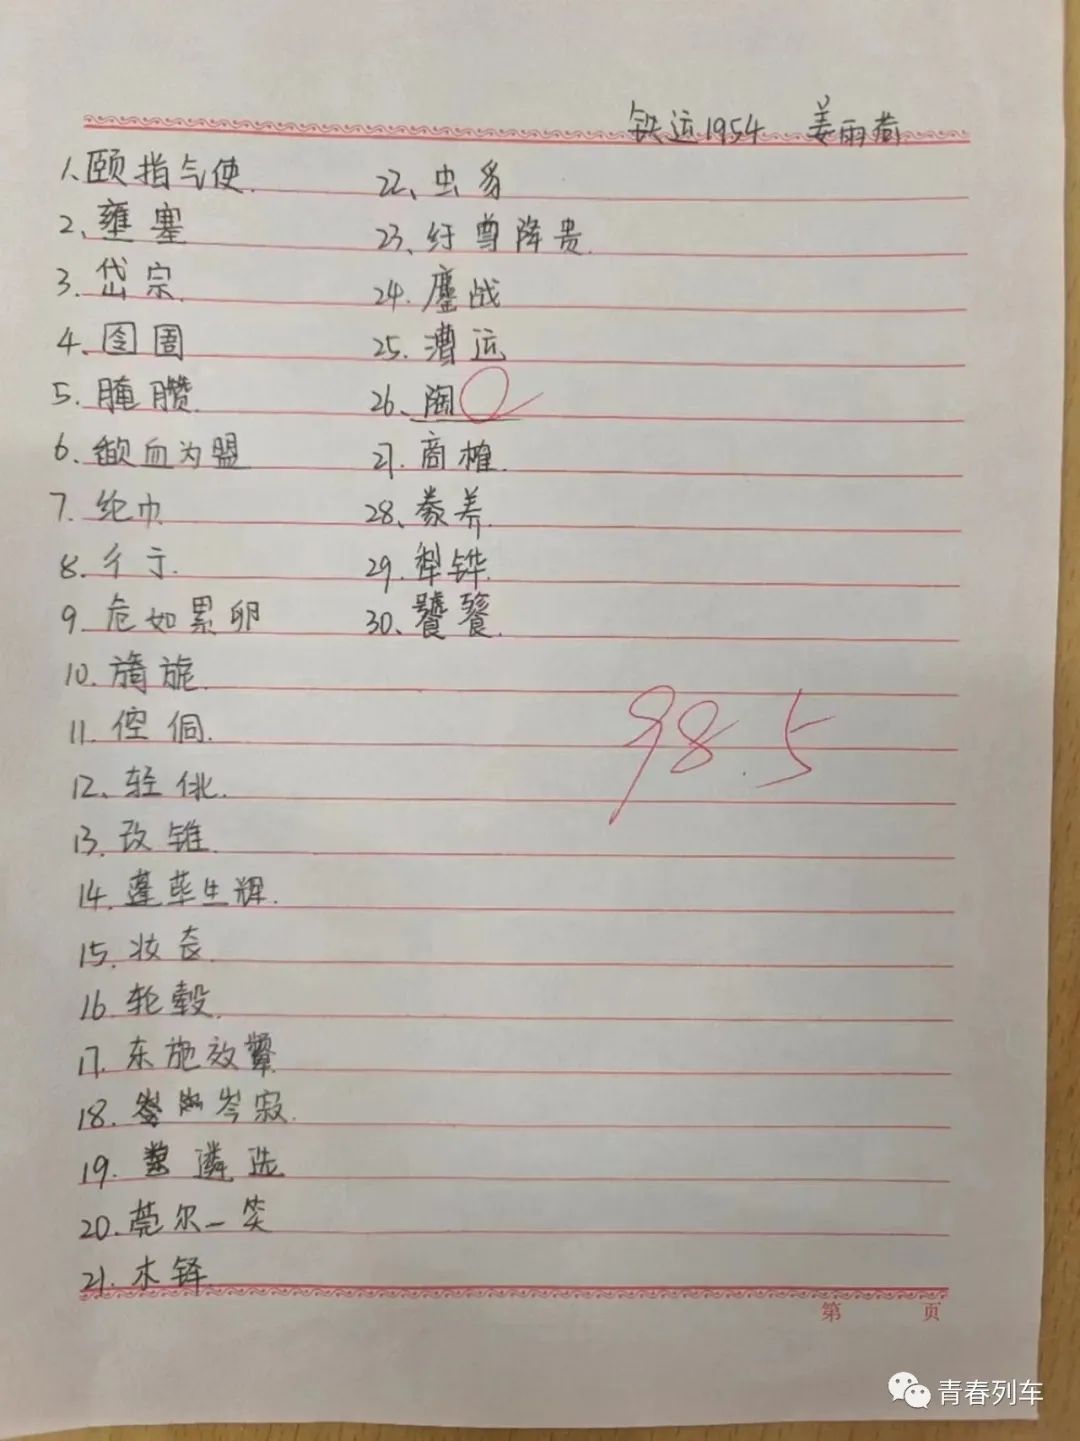 铁运1954 姜雨荷
1、颐指气使.
2、壅塞
3、岱宗.
4、囹圄
5、腌臜.
6、歃血为盟
7、纶巾
8、彳亍.
9、危如累卵
10、旖旎.
11、倥侗.
12、轻佻.
13、改锥.
14、蓬荜生辉.
15、妆奁.
16、轮毂.
17、东施效颦.
18、岑寂.
19、遴选
20、莞尔一笑
21、木铎.
22、虫豸
23、纡尊降贵.
24、鏖战
25、漕运
26、阄
27、商榷.
28、豢养.
29、犁铧.
30、饕餮.
98.5
第 页
青春列车